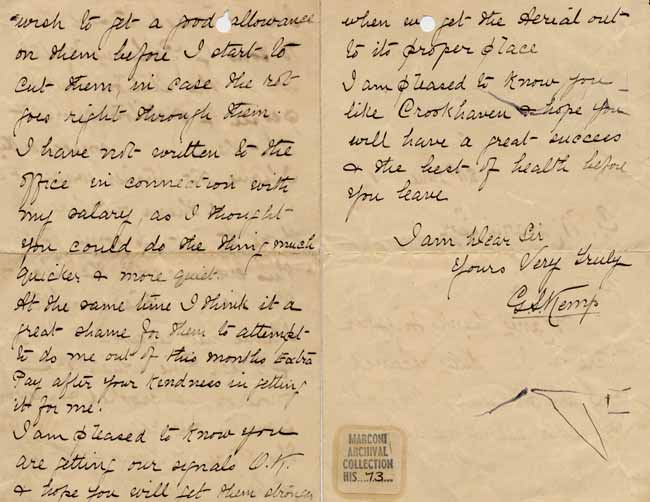 wish to get a good allowance
on them before I start to
cut them, in case the rot
goes right through them.
I have not written to the
office in connection with
my salary, as I thought
you could do the thing much
quicker & more quiet.
At the same time I think it a
great shame for them to attempt
to do me out of this months Extra
Pay after your kindness in getting
it for me.
I am pleased to know you
are getting our signals O.K.
& hope you will get them stronger
when we get the Aerial out
to its proper place
I am pleased to know you
like Crookhaven & hope you
will have a great success
& the best of health before
you leave
I am Dear Sir
Yours Very Truly
G.S. Kemp
MARCONI
ARCHIVAL
COLLECTION
HIS....73....